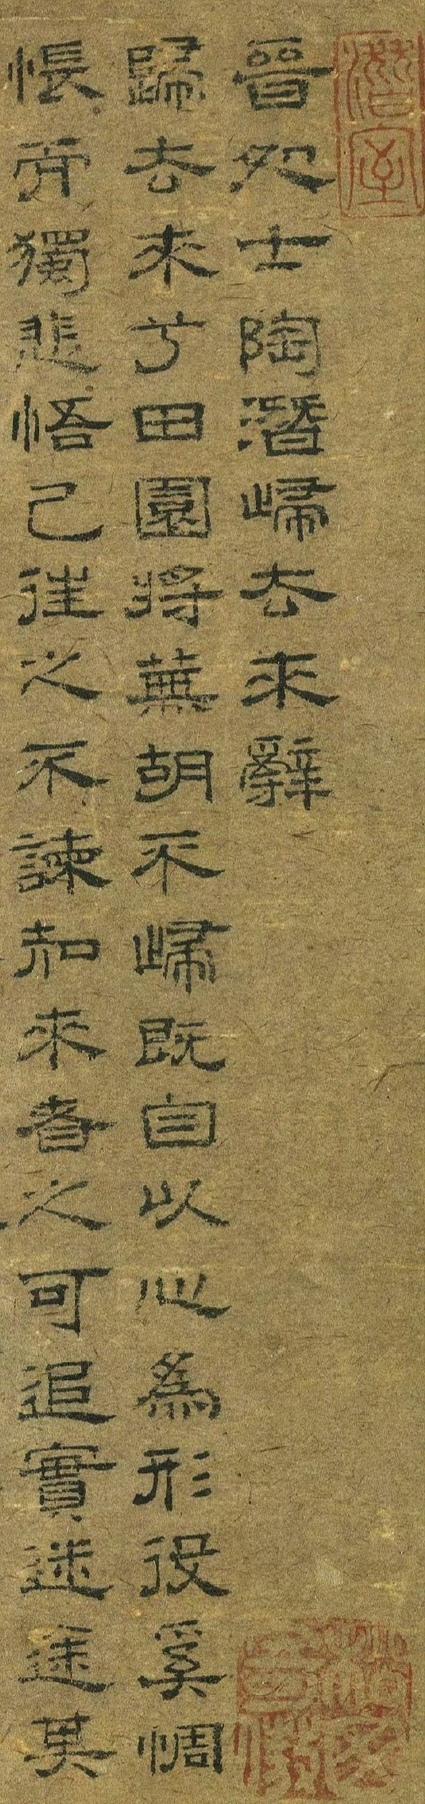 晉処士陶潛歸去來辭
歸去來兮田園將蕪胡不歸既自以心為形役奚惆
悵而獨悲悟已往之不諫知來者之可追實迷途其